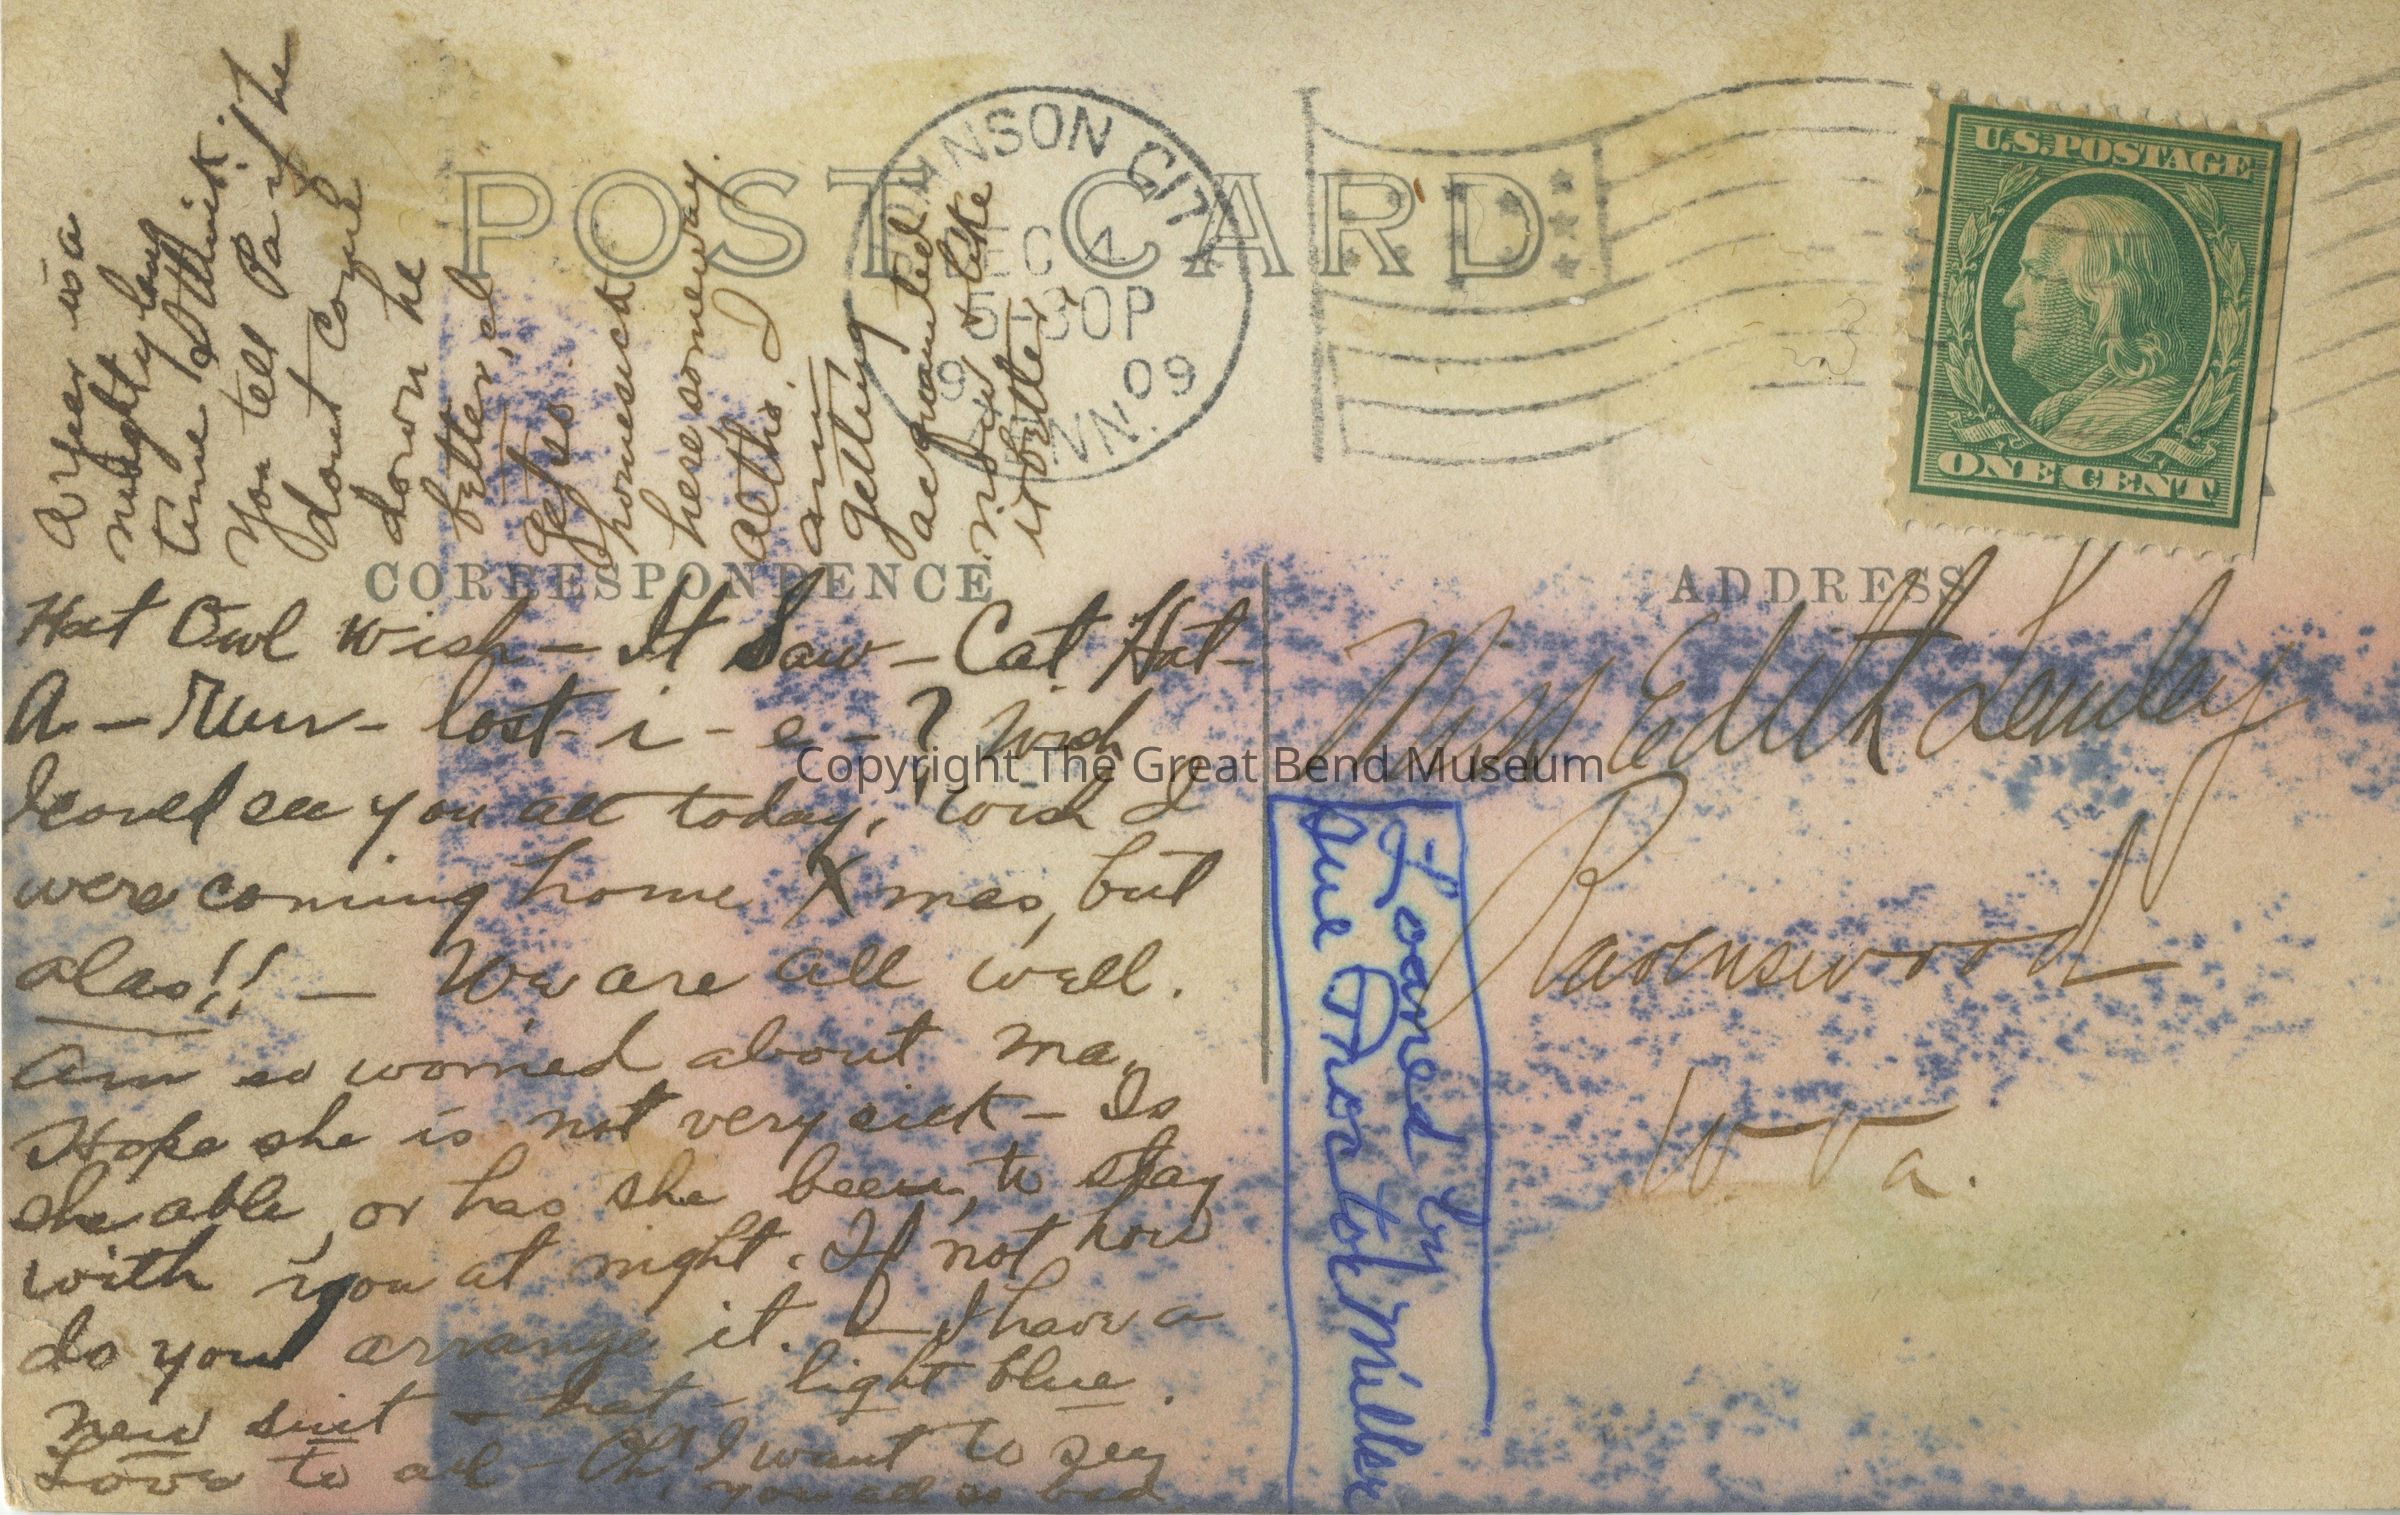 POST CARD
JOHNSON CITY
DEC 4
5-30P
1909
TENN.
U.S. POSTAGE
ONE CENT
CORRESPONDENCE
ADDRESS
Hat Owl wish - It Saw - Cat Hat -
A - Run - lost - i - e - ? Wish
I could see you all today, wish I
were coming home Xmas, but
alas!! - We are all well.
Am so worried about ma.
Hope she is not very sick - Is
she able, or has she been, to stay
with you at night. If not how
do you arrange it. - I have a
new suit - hat - light blue.
Love to all - Oh! I want to see
you all so bad.
A year is a
mighty long
time I think.
You tell Pa if he
dont come
down he
better, I
get so
homesick
here someway.
Altho' I
am
getting
acquainted
now & like
it better
Miss Edith Lemley
Ravenswood
W. Va.
Loaned by
Sue Proctor Miller
Copyright The Great Bend Museum